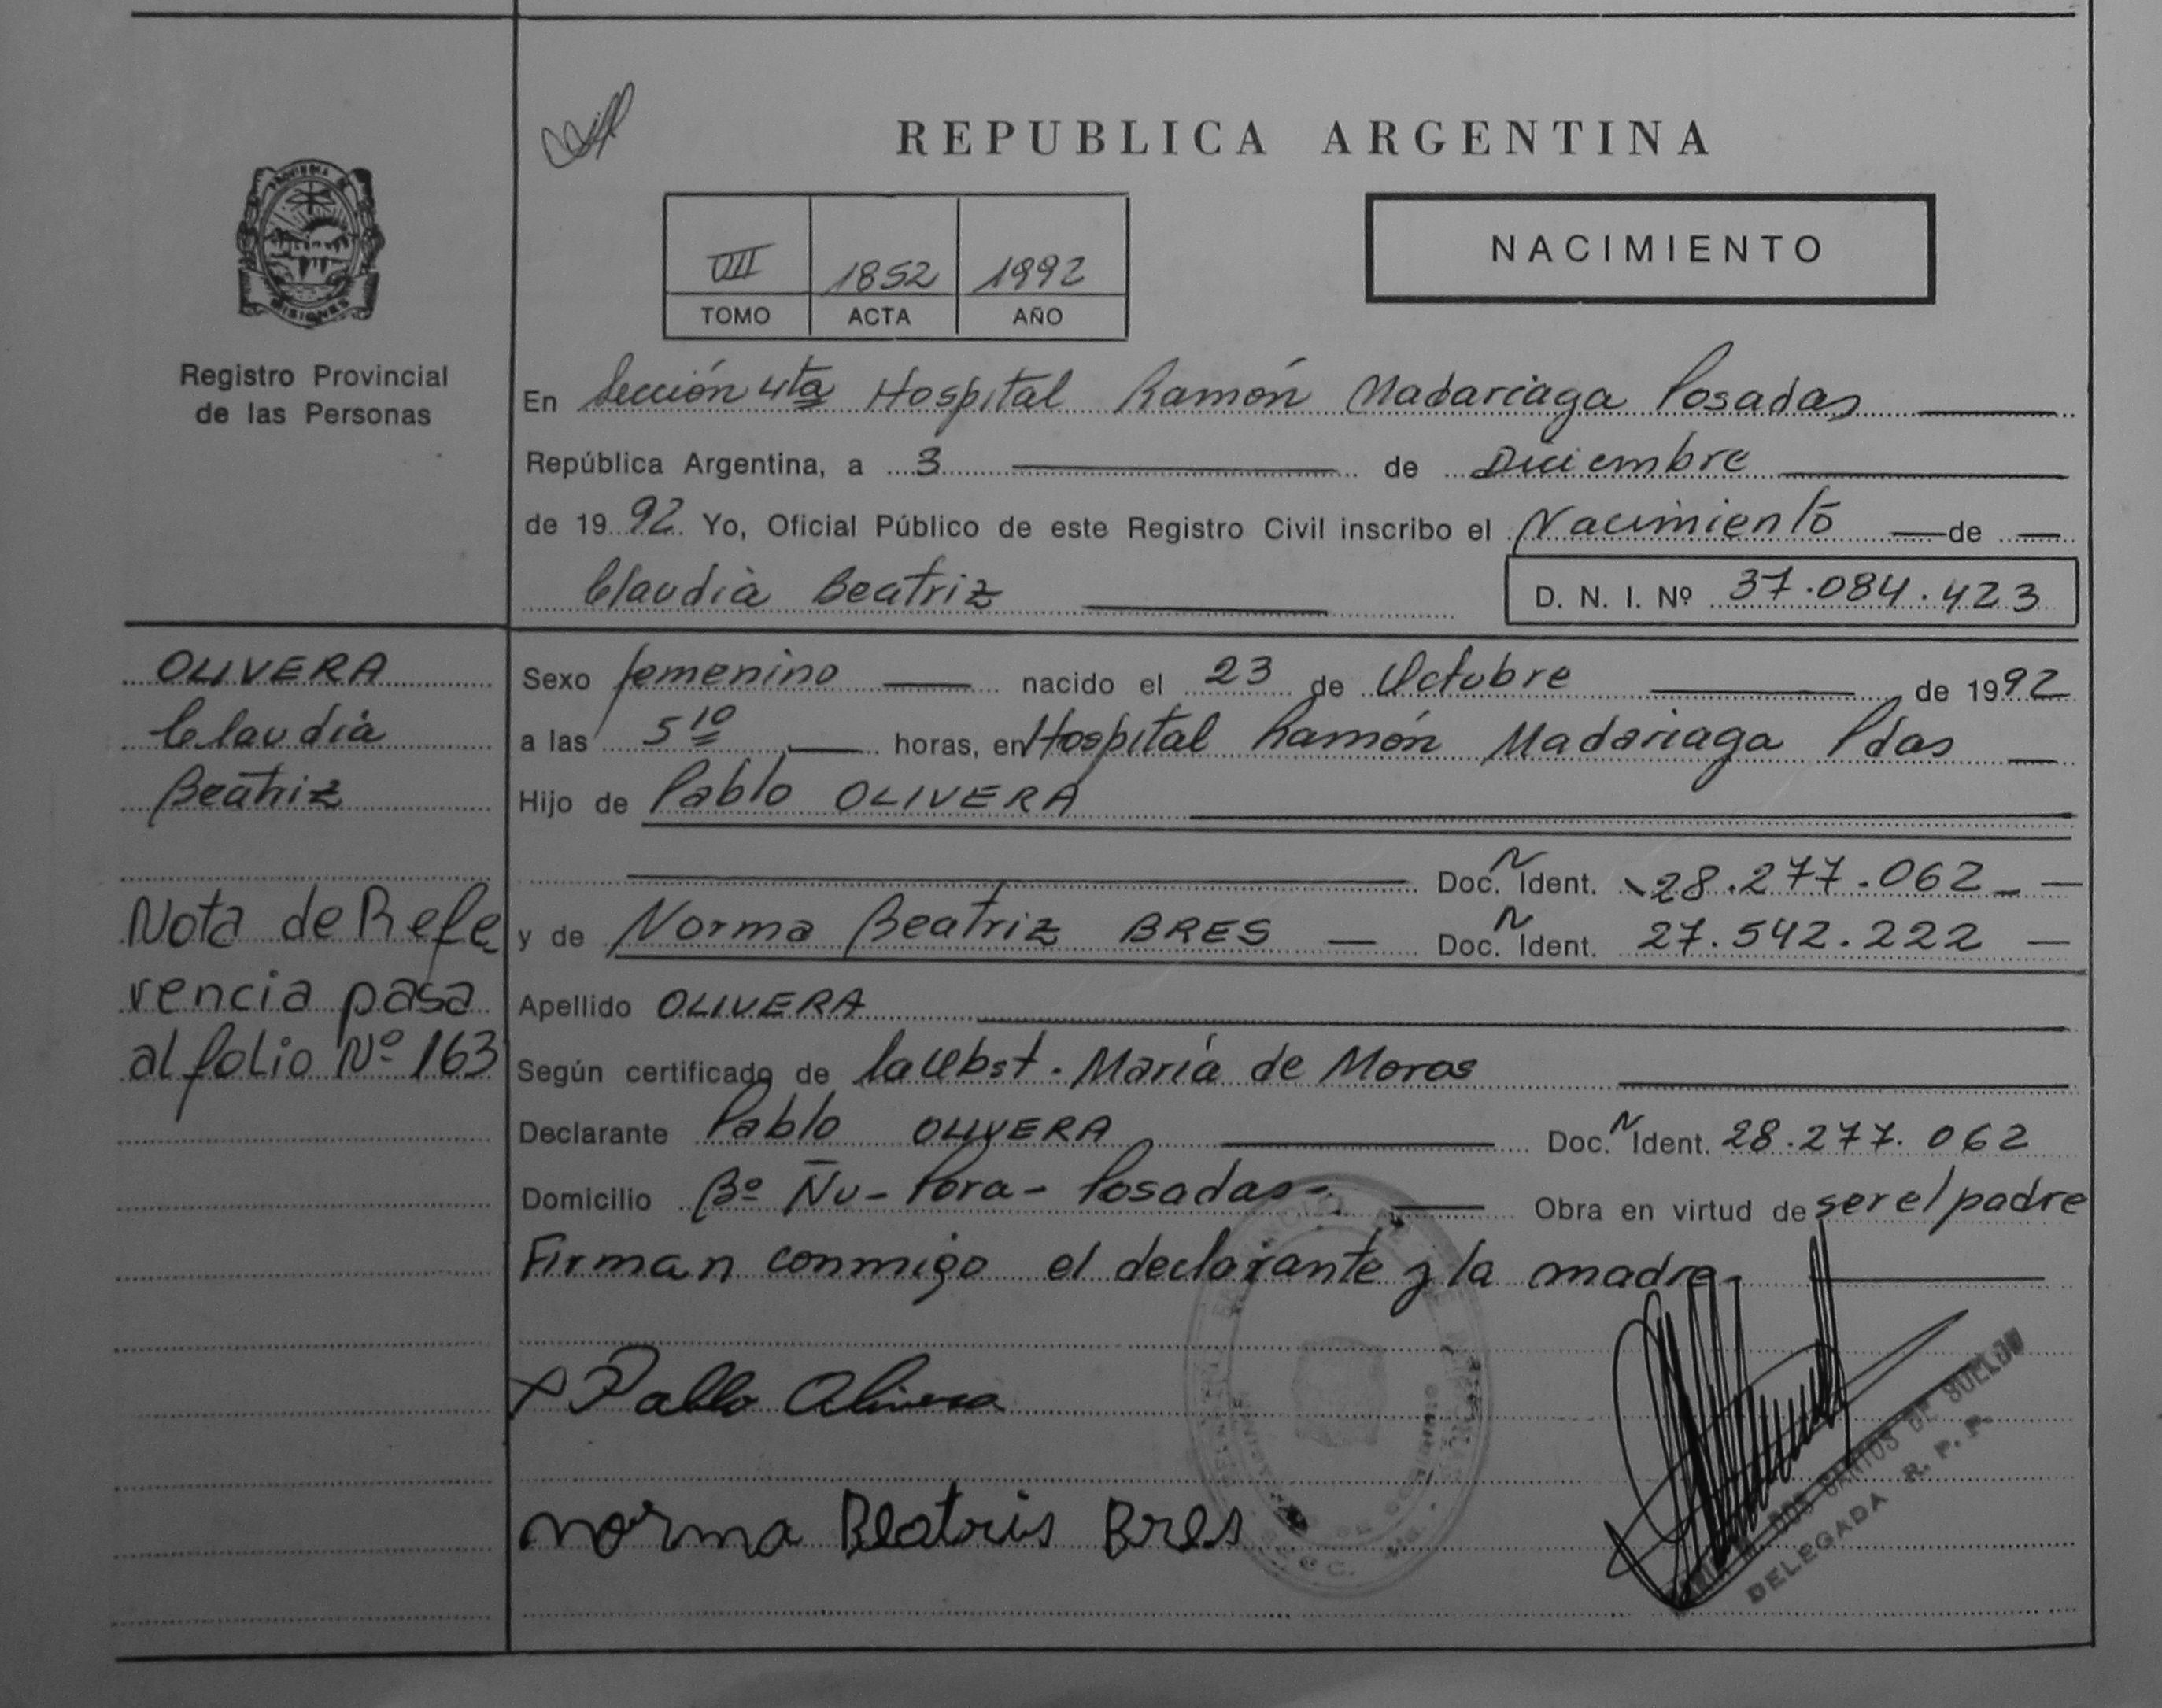 REPUBLICA ARGENTINA
VIII 1852 1992
TOMO ACTA AÑO
NACIMIENTO
PROVINCIA DE MISIONES
Registro Provincial
de las Personas
En Sección 4ta Hospital Ramón Madariaga Posadas
República Argentina, a 3 de Diciembre
de 1992 Yo, Oficial Público de este Registro Civil inscribo el Nacimiento de
Claudia Beatriz
D. N. I. Nº 37.084.423
OLIVERA
Claudia
Beatriz
Nota de Refe
rencia pasa
al folio Nº 163
Sexo femenino nacido el 23 de Octubre de 1992
a las 5 10 horas, en Hospital Ramón Madariaga Pdas
Hijo de Pablo OLIVERA
Doc. N Ident. 28.277.062
y de Norma Beatriz BRES Doc. N Ident. 27.542.222
Apellido OLIVERA
Según certificado de la Obst. María de Moras
Declarante Pablo OLIVERA Doc. N Ident. 28.277.062
Domicilio Bº Ñu-Pora-Posadas- Obra en virtud de ser el padre
Firman conmigo el declarante y la madre-
x Pablo Olivera
norma Beatris Bres
DOS SANTOS DE SUELDO
DELEGADA R. P. P.